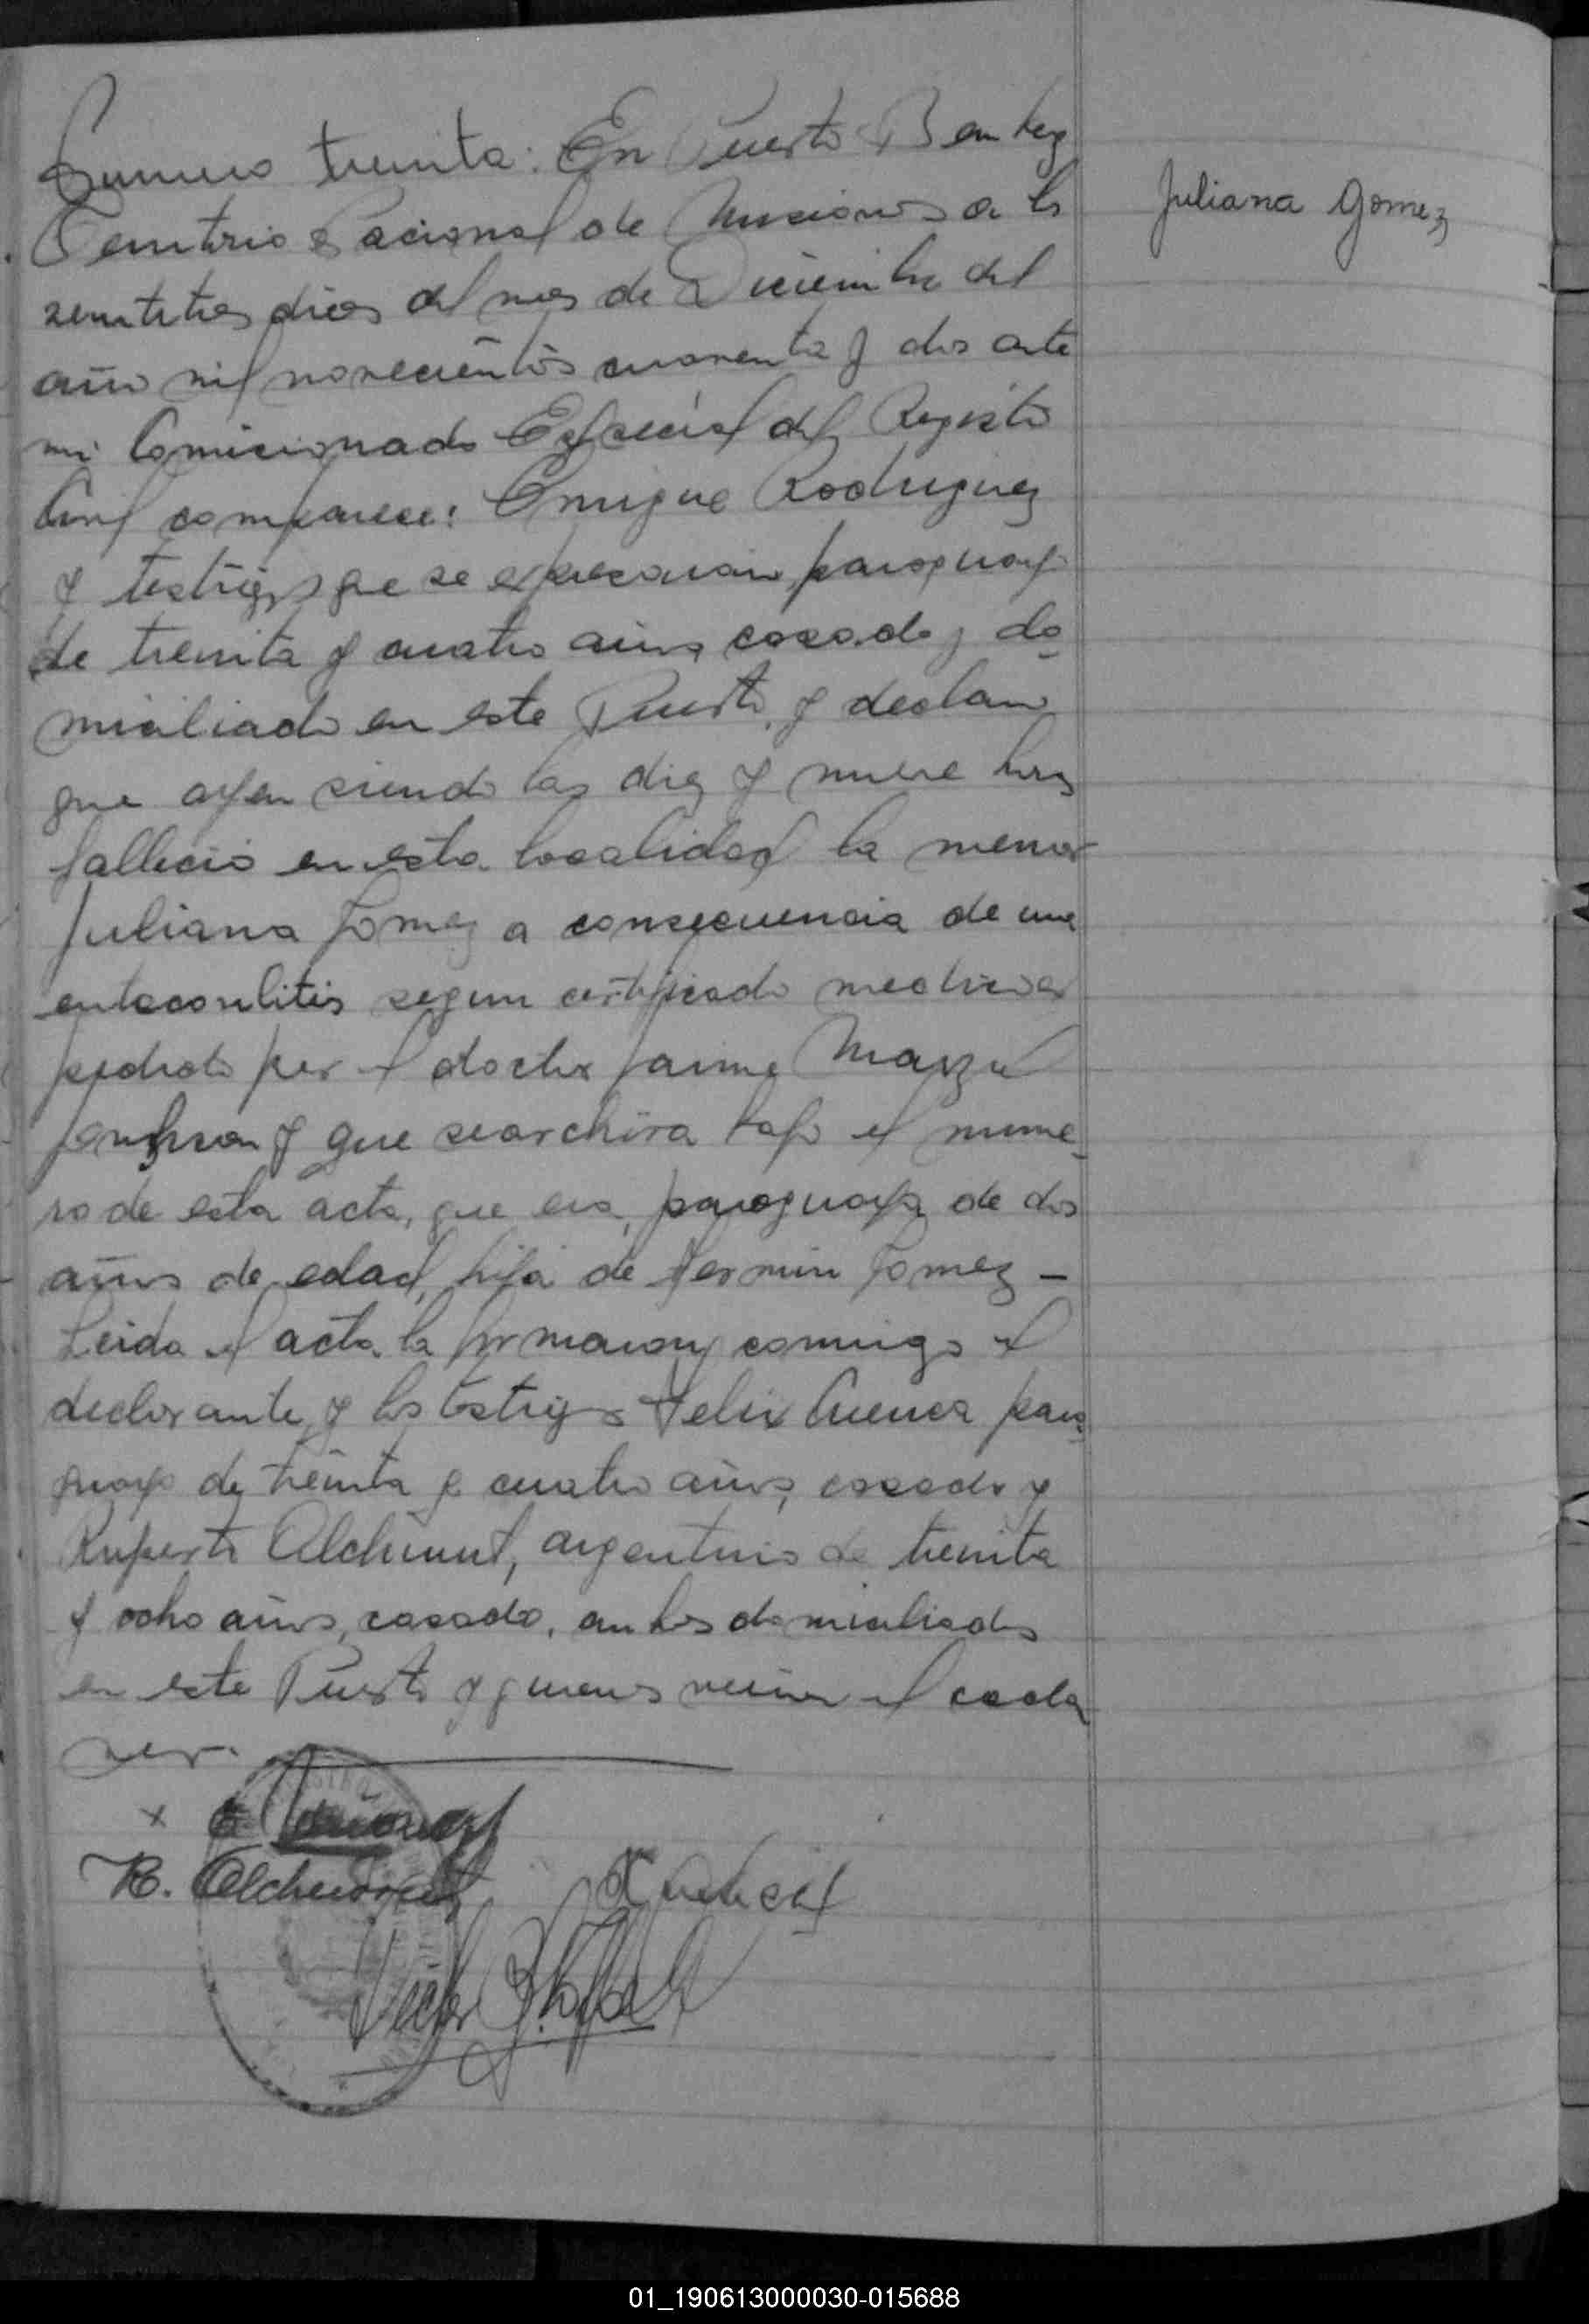 Numero treinta: En Puerto Bemberg
Juliana Gomez
Territorio Nacional de Misiones a los
veintitres dias del mes de Diciembre del
año mil novecientos cuarenta y dos ante
mi Comicionado Especial del Registro
Civil comparece: Enrique Rodriguez
y testigos que se expresaran, paraguayo
de treinta y cuatro años, casado, do
miciliado en este Puerto, y declara
que ayer siendo las diez y nueve horas
fallecio en esta localidad la menor
Juliana Gomez a consecuencia de una
segun certificado medico ex
pedido por el doctor Jaime
y que se archiva bajo el nume
ro de esta acta, que era, paraguaya de dos
años de edad, hija de Fermin Gomez -
Leida el acta la firmaron conmigo el
declarante y los testigos Felix Cuenca para
guayo de treinta y cuatro años, casado y
Ruperto argentino de treinta
y ocho años, casado, ambos domiciliados
en este Puerto y quienes vieron el cada
ver.
x
R.
01_190613000030-015688